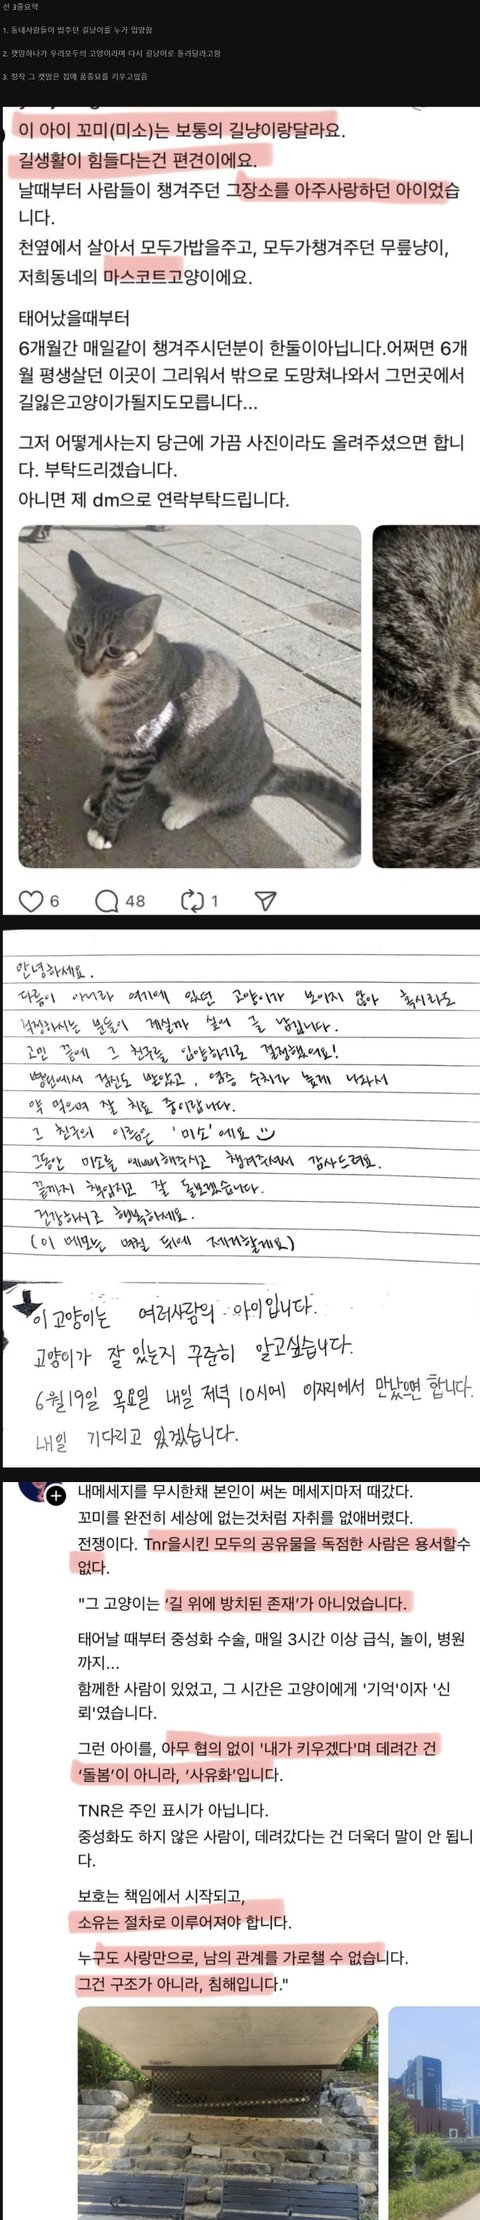 선 3줄요약
1. 동네사람들이 밥주던 길냥이를 누가 입양함
2. 캣맘하나가 우리모두의 고양이라며 다시 길냥이로 돌려달라고함
3. 정작 그 캣맘은 집에 품종묘를 키우고있음
이 아이 꼬미(미소)는 보통의 길냥이랑달라요.
길생활이 힘들다는건 편견이에요.
날때부터 사람들이 챙겨주던 그장소를 아주사랑하던 아이었습
니다.
천옆에서 살아서 모두가밥을주고, 모두가챙겨주던 무릎냥이,
저희동네의 마스코트고양이에요.
태어났을때부터
6개월간 매일같이 챙겨주시던분이 한둘이아닙니다.어쩌면 6개
월 평생살던 이곳이 그리워서 밖으로 도망쳐나와서 그먼곳에서
길잃은고양이가될지도모릅니다...
그저 어떻게사는지 당근에 가끔 사진이라도 올려주셨으면 합니
다. 부탁드리겠습니다.
아니면 제 dm으로 연락부탁드립니다.
6 48 1
안녕하세요.
다름이 아니라 여기에 있던 고양이가 보이지 않아 혹시라도
걱정하시는 분들이 계실까 싶어 글 남깁니다.
고민 끝에 그 친구를 입양하기로 결정했어요!
병원에서 검진도 받았고, 염증 수치가 높게 나와서
약 먹으며 잘 치료 중이랍니다.
그 친구의 이름은 '미소'예요
그동안 미소를 예뻐해주시고 챙겨주셔서 감사드려요.
끝까지 책임지고 잘 돌보겠습니다.
건강하시고 행복하세요.
(이 메모는 며칠 뒤에 제거할게요)
이 고양이는 여러사람의 아이입니다.
고양이가 잘 있는지 꾸준히 알고싶습니다.
6월19일 목요일 내일 저녁 10시에 이자리에서 만났으면 합니다.
내일 기다리고 있겠습니다.
내메세지를 무시한채 본인이 써논 메세지마저 때갔다.
꼬미를 완전히 세상에 없는것처럼 자취를 없애버렸다.
전쟁이다. Tnr을시킨 모두의 공유물을 독점한 사람은 용서할수
없다.
"그 고양이는 '길 위에 방치된 존재'가 아니었습니다.
태어날 때부터 중성화 수술, 매일 3시간 이상 급식, 놀이, 병원
까지...
함께한 사람이 있었고, 그 시간은 고양이에게 '기억'이자 '신
뢰'였습니다.
그런 아이를, 아무 협의 없이 '내가 키우겠다'며 데려간 건
'돌봄'이 아니라, '사유화'입니다.
TNR은 주인 표시가 아닙니다.
중성화도 하지 않은 사람이, 데려갔다는 건 더욱더 말이 안 됩니
다.
보호는 책임에서 시작되고,
소유는 절차로 이루어져야 합니다.
누구도 사랑만으로, 남의 관계를 가로챌 수 없습니다.
그건 구조가 아니라, 침해입니다."